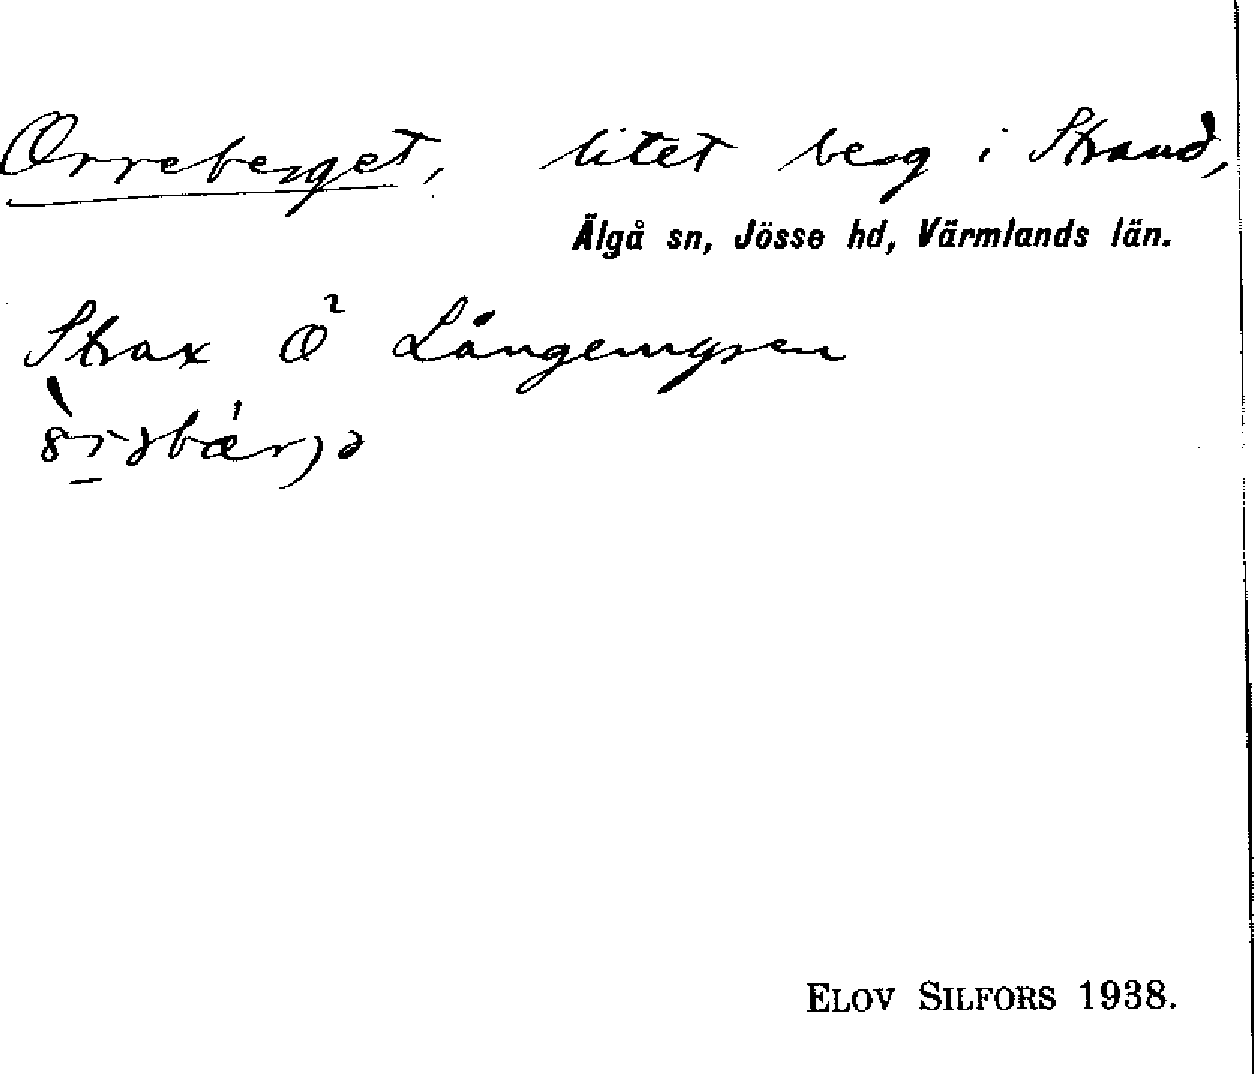 Orreberget, litet berg i Strand,
Älgå sn, Jösse hd, Värmlands län.
Strax O² Långemyren
ELOV SILFORS 1938.